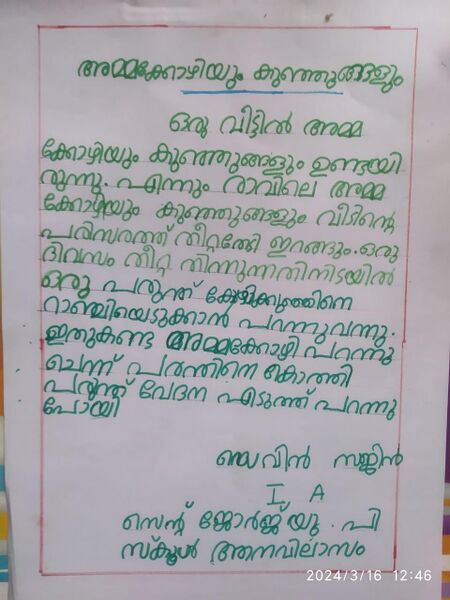 അമ്മക്കോഴിയും കുഞ്ഞുങ്ങളും
ഒരു വീട്ടിൽ അമ്മ
ക്കോഴിയും കുഞ്ഞുങ്ങളും ഉണ്ടയി
രുന്നു. എന്നും രാവിലെ അമ്മ
ക്കോഴിയും കുഞ്ഞുങ്ങളും വീടിന്റെ
പരിസരത്ത് തീറ്റതേടി ഇറങ്ങും. ഒരു
ദിവസം തീറ്റ തിന്നുന്നതിനിടയിൽ
ഒരു പരുന്ത് കോഴിക്കുഞ്ഞിനെ
റാഞ്ചിയെടുക്കാൻ പറന്നുവന്നു.
ഇതുകണ്ട അമ്മക്കോഴി പറന്നു
ചെന്ന് പരുന്തിനെ കൊത്തി
പരുന്ത് വേദന എടുത്ത് പറന്നു
പോയി
സജിൻ
I, A
സെന്റ് ജോർജ് യു. പി
സ്കൂൾ ആനവിലാസം
2024/3/16 12:46